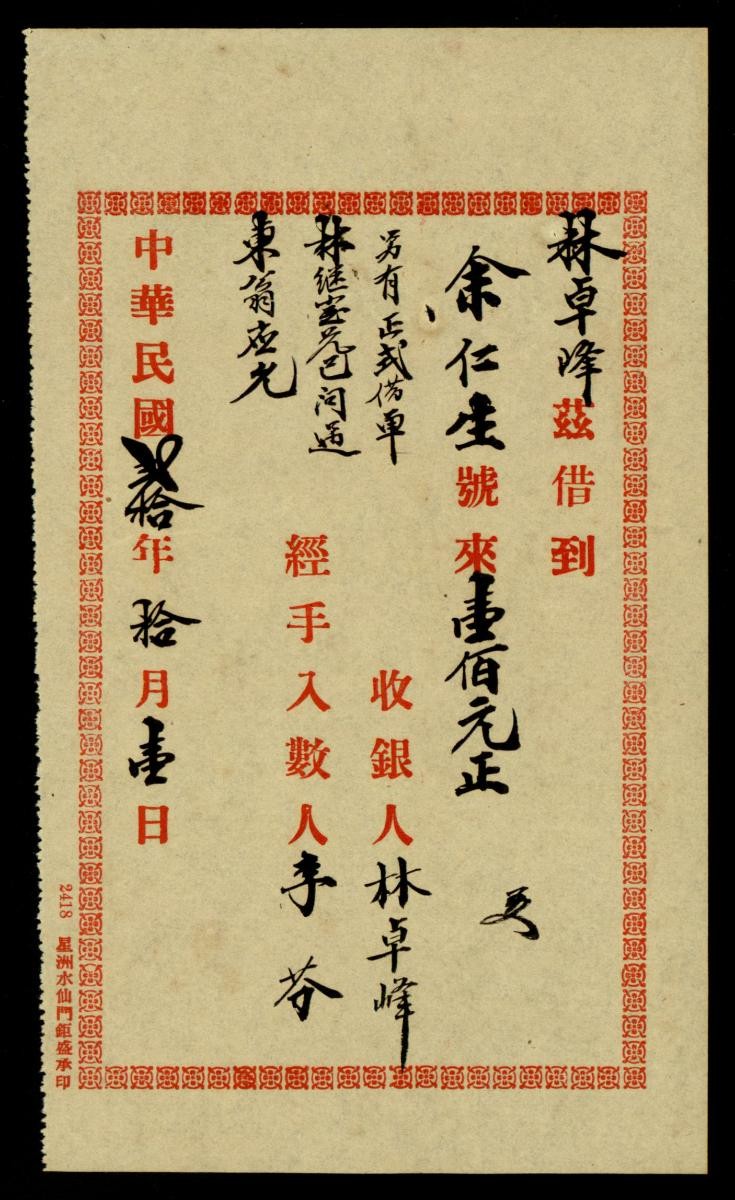 林卓峰茲借到
余仁生號來壹佰元正
另有正式借单
收銀人林卓峰
林继兄已问過
經手入數人李芬
東翁应允
中華民國貳拾年拾月壹日
2418 星洲水仙門鉅盛承印